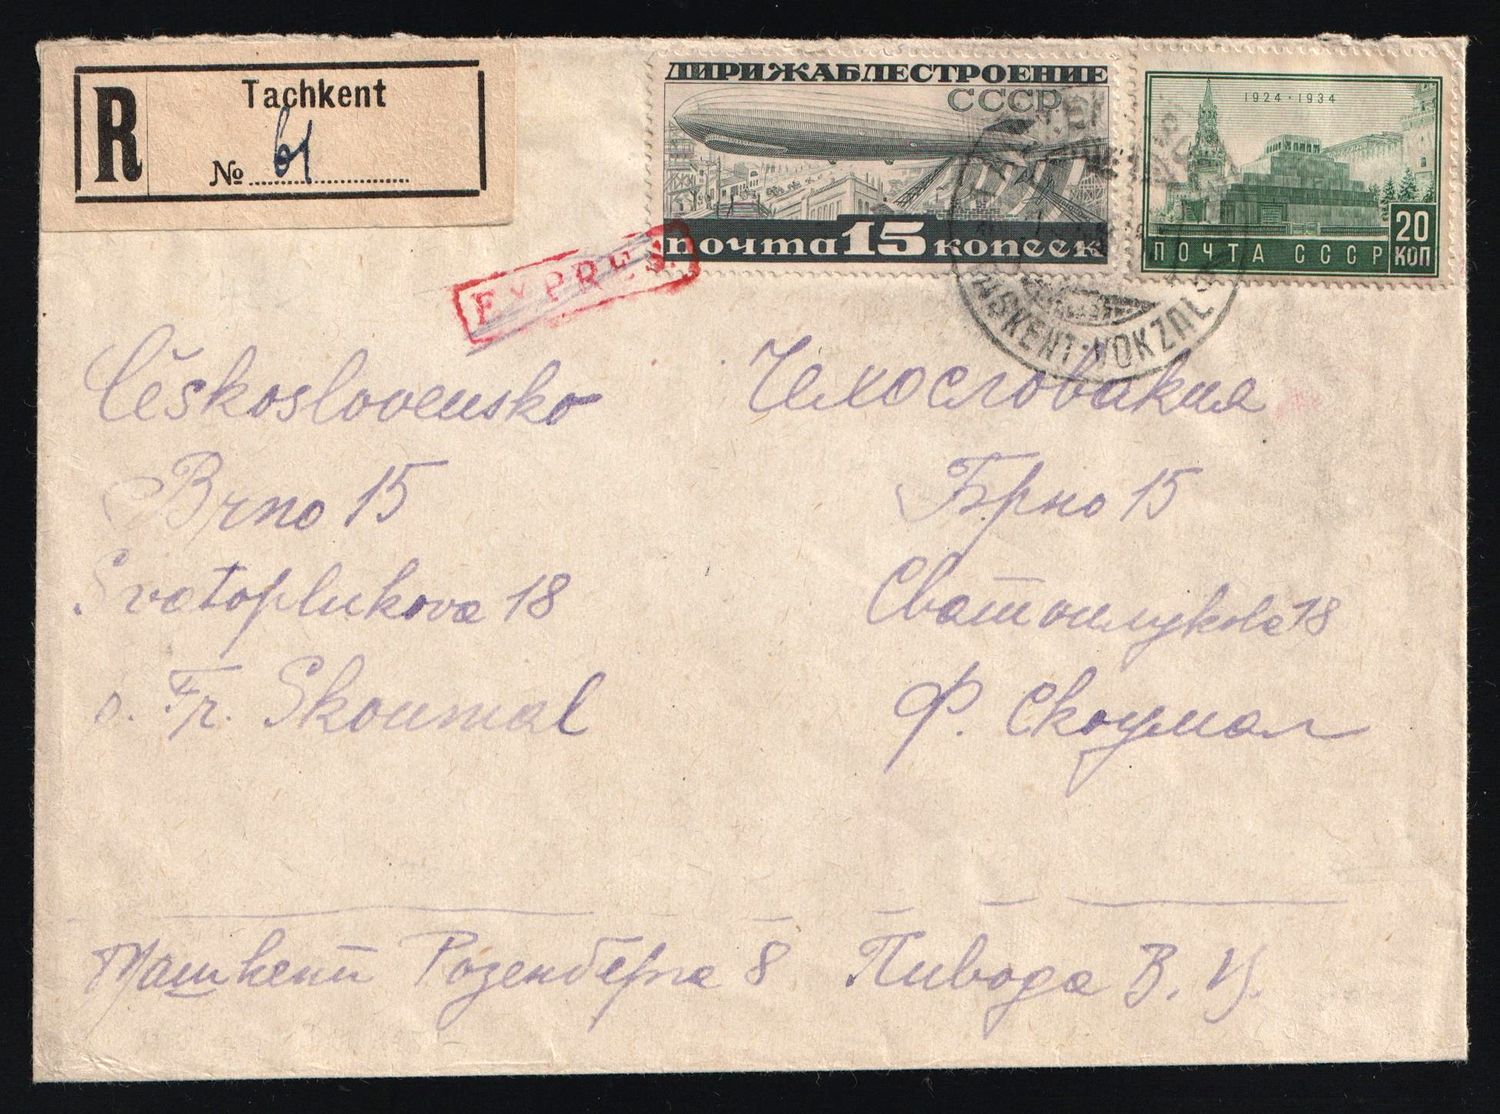 R
Tachkent
№ 61
ДИРИЖАБЛЕСТРОЕНИЕ
СССР
почта 15 копеек
1924 · 1934
ПОЧТА СССР
20
КОП
TASKENT-VOKZAL
EXPRES
Československo
Brno 15
Svatoplukova 18
p. Fr. Skoumal
Чехословакия
Брно 15
Сватоплукова 18
Ф. Скоумал
Ташкент Розенберга 8 Пивода В. И.